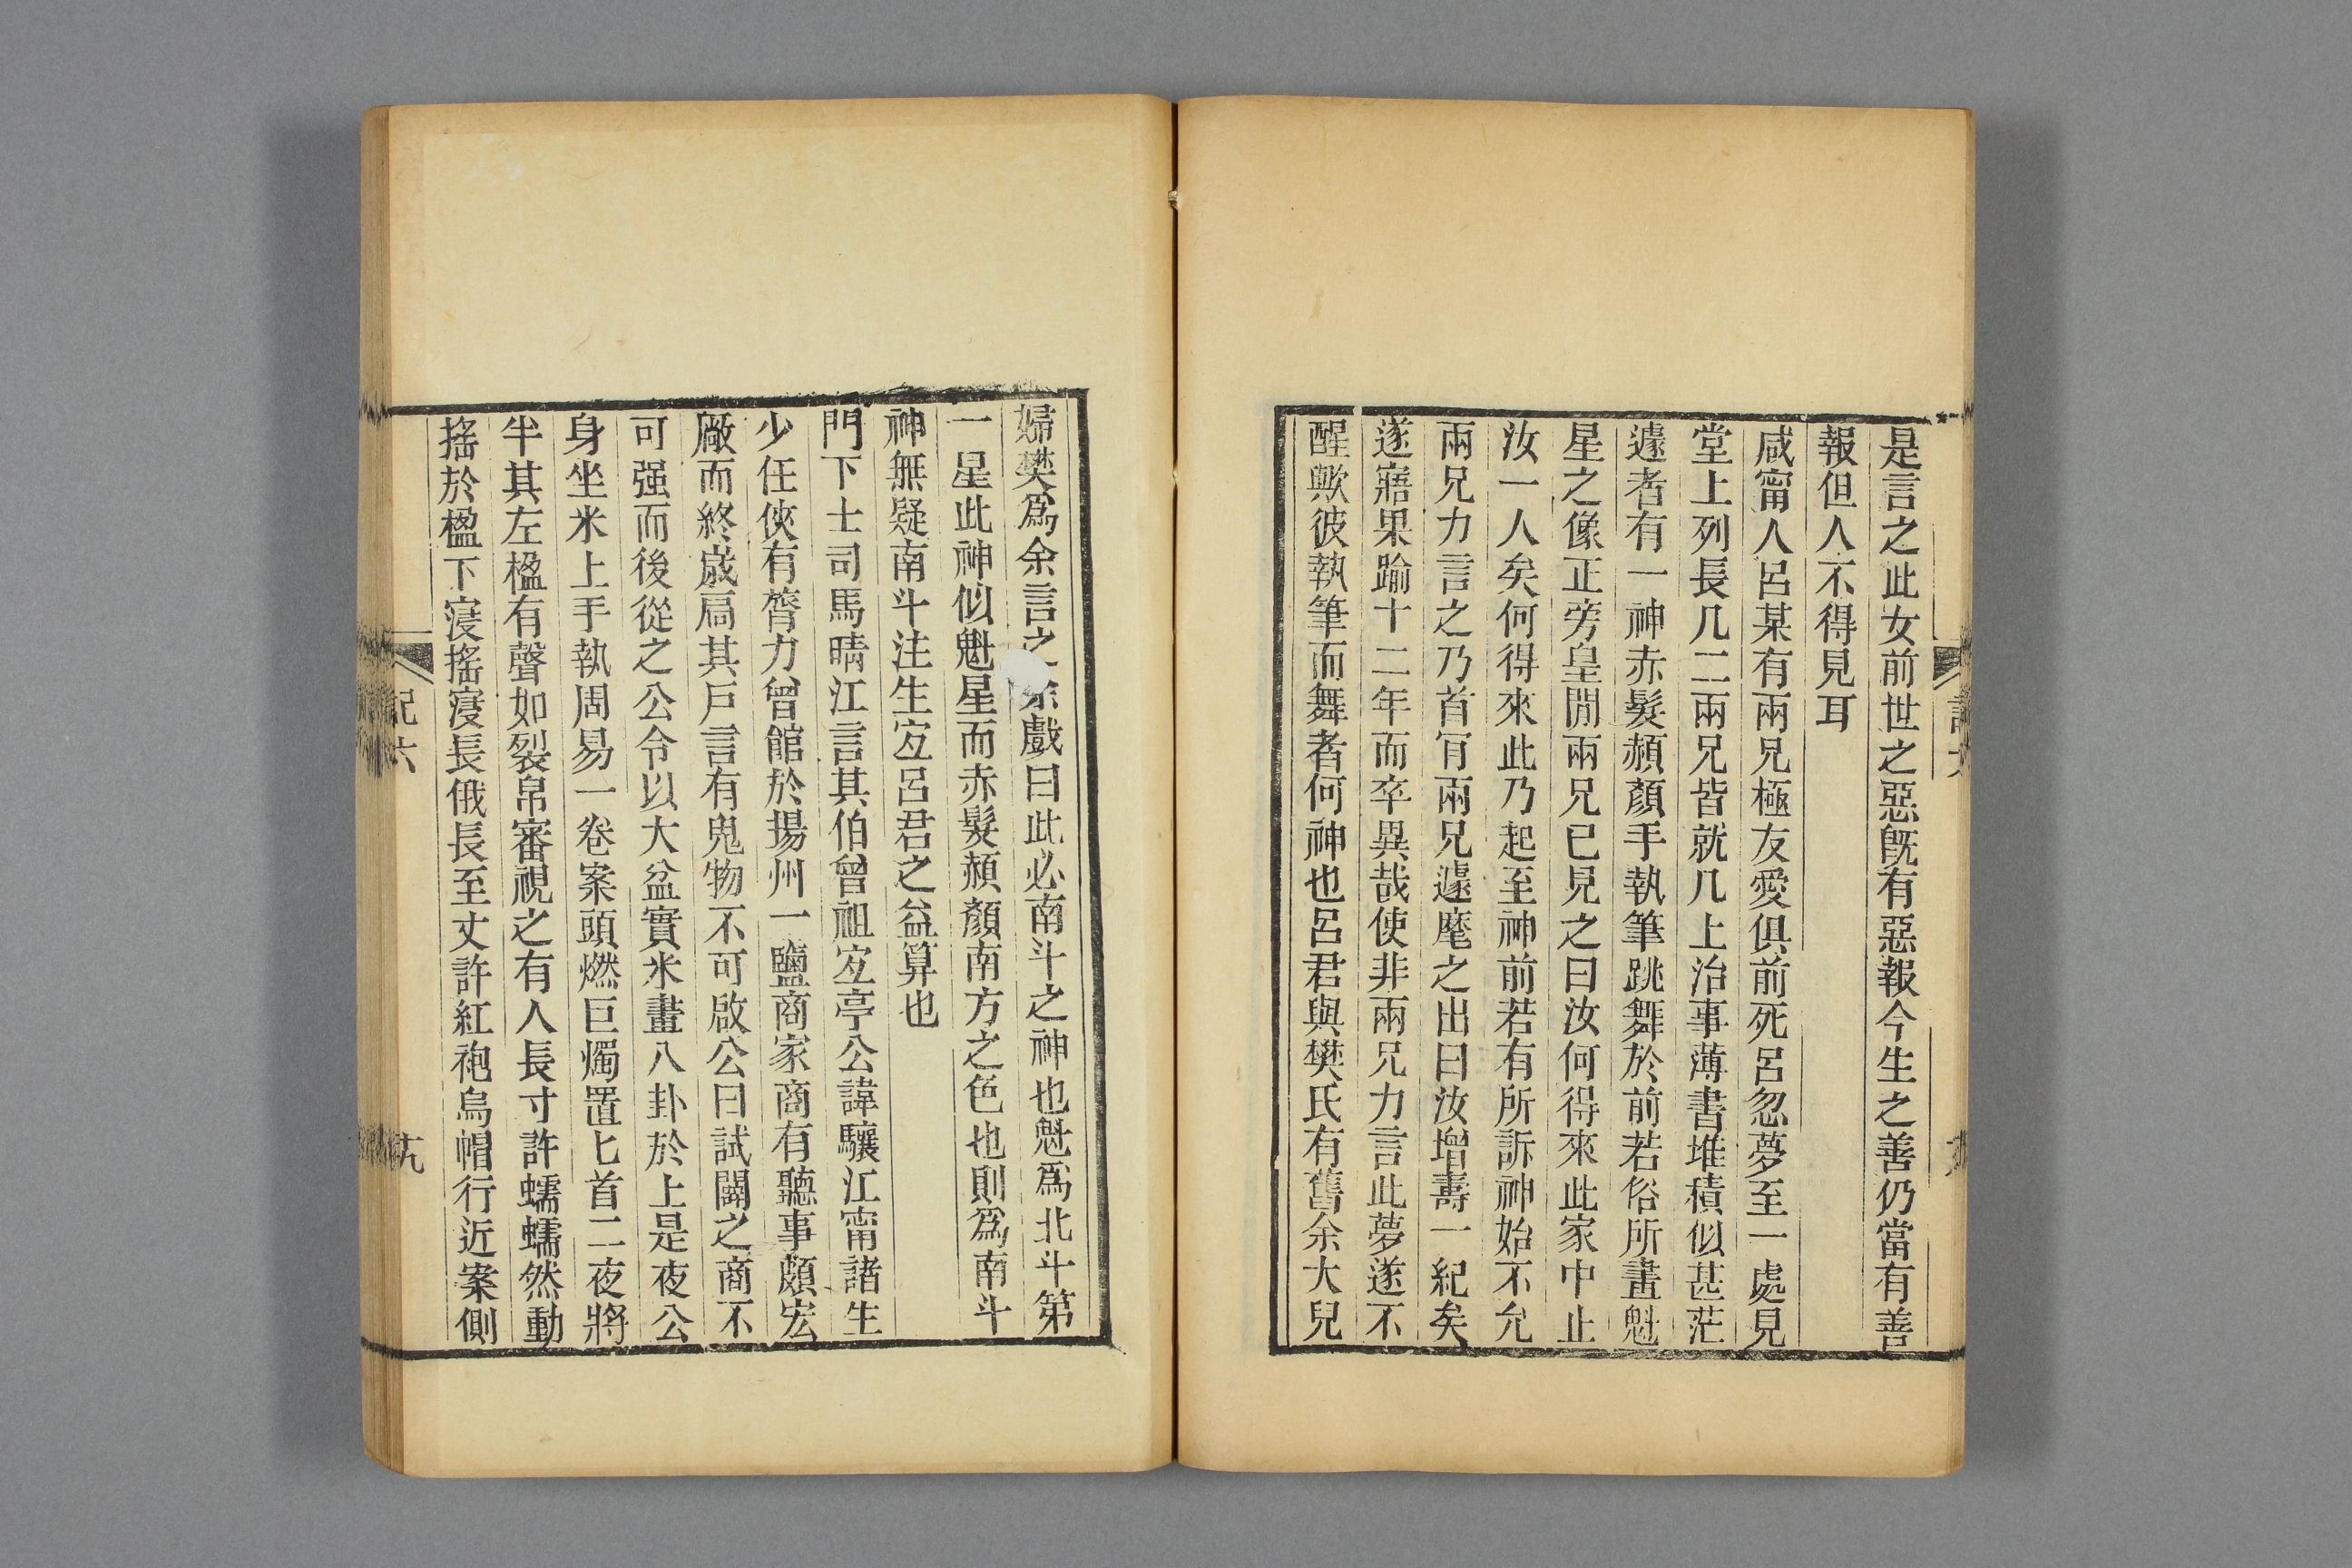 是言之此女前世之惡旣有惡報今生之善仍當有善
報但人不得見耳
咸甯人呂某有兩兄極友愛俱前死呂忽夢至一處見
堂上列長几二兩兄皆就几上治事薄書堆積似甚茫
遽者有一神赤髮頳顏手執筆跳舞於前若俗所畫魁
星之像正旁皇閒兩兄已見之曰汝何得來此家中止
汝一人矣何得來此乃起至神前若有所訴神始不允
兩兄力言之乃首肎兩兄遽麾之出曰汝增壽一紀矣
遂寤果踰十二年而卒異哉使非兩兄力言此夢遂不
醒歟彼執筆而舞者何神也呂君與樊氏有舊余大兒
婦樊爲余言之余戲曰此必南斗之神也魁爲北斗第
一星此神似魁星而赤髮頳顏南方之色也則爲南斗
神無疑南斗注生宐呂君之益算也
門下士司馬晴江言其伯曾祖宐亭公諱驤江甯諸生
少任俠有膂力曾館於揚州一鹽商家商有聽事頗宏
厰而終歲扃其戶言有鬼物不可啟公曰試闢之商不
可强而後從之公令以大盆實米畫八卦於上是夜公
身坐米上手執周易一卷案頭燃巨燭置匕首二夜將
半其左楹有聲如裂帛審視之有人長寸許蠕蠕然動
搖於楹下寖搖寖長俄長至丈許紅袍烏帽行近案側
記六
十九